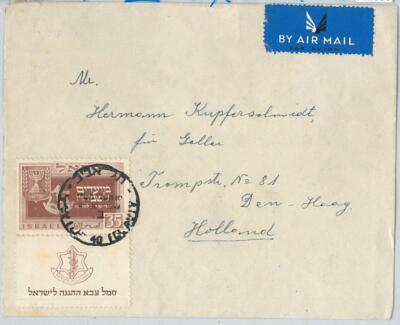 BY AIR MAIL
PAR AVION
Mr.
Hermann Kupferschmidt,
für Geller
Trompstr. No 81
Den-Haag
Holland
ישראל
35
ISRAEL
תל אביב
סמל צבא ההגנה לישראל